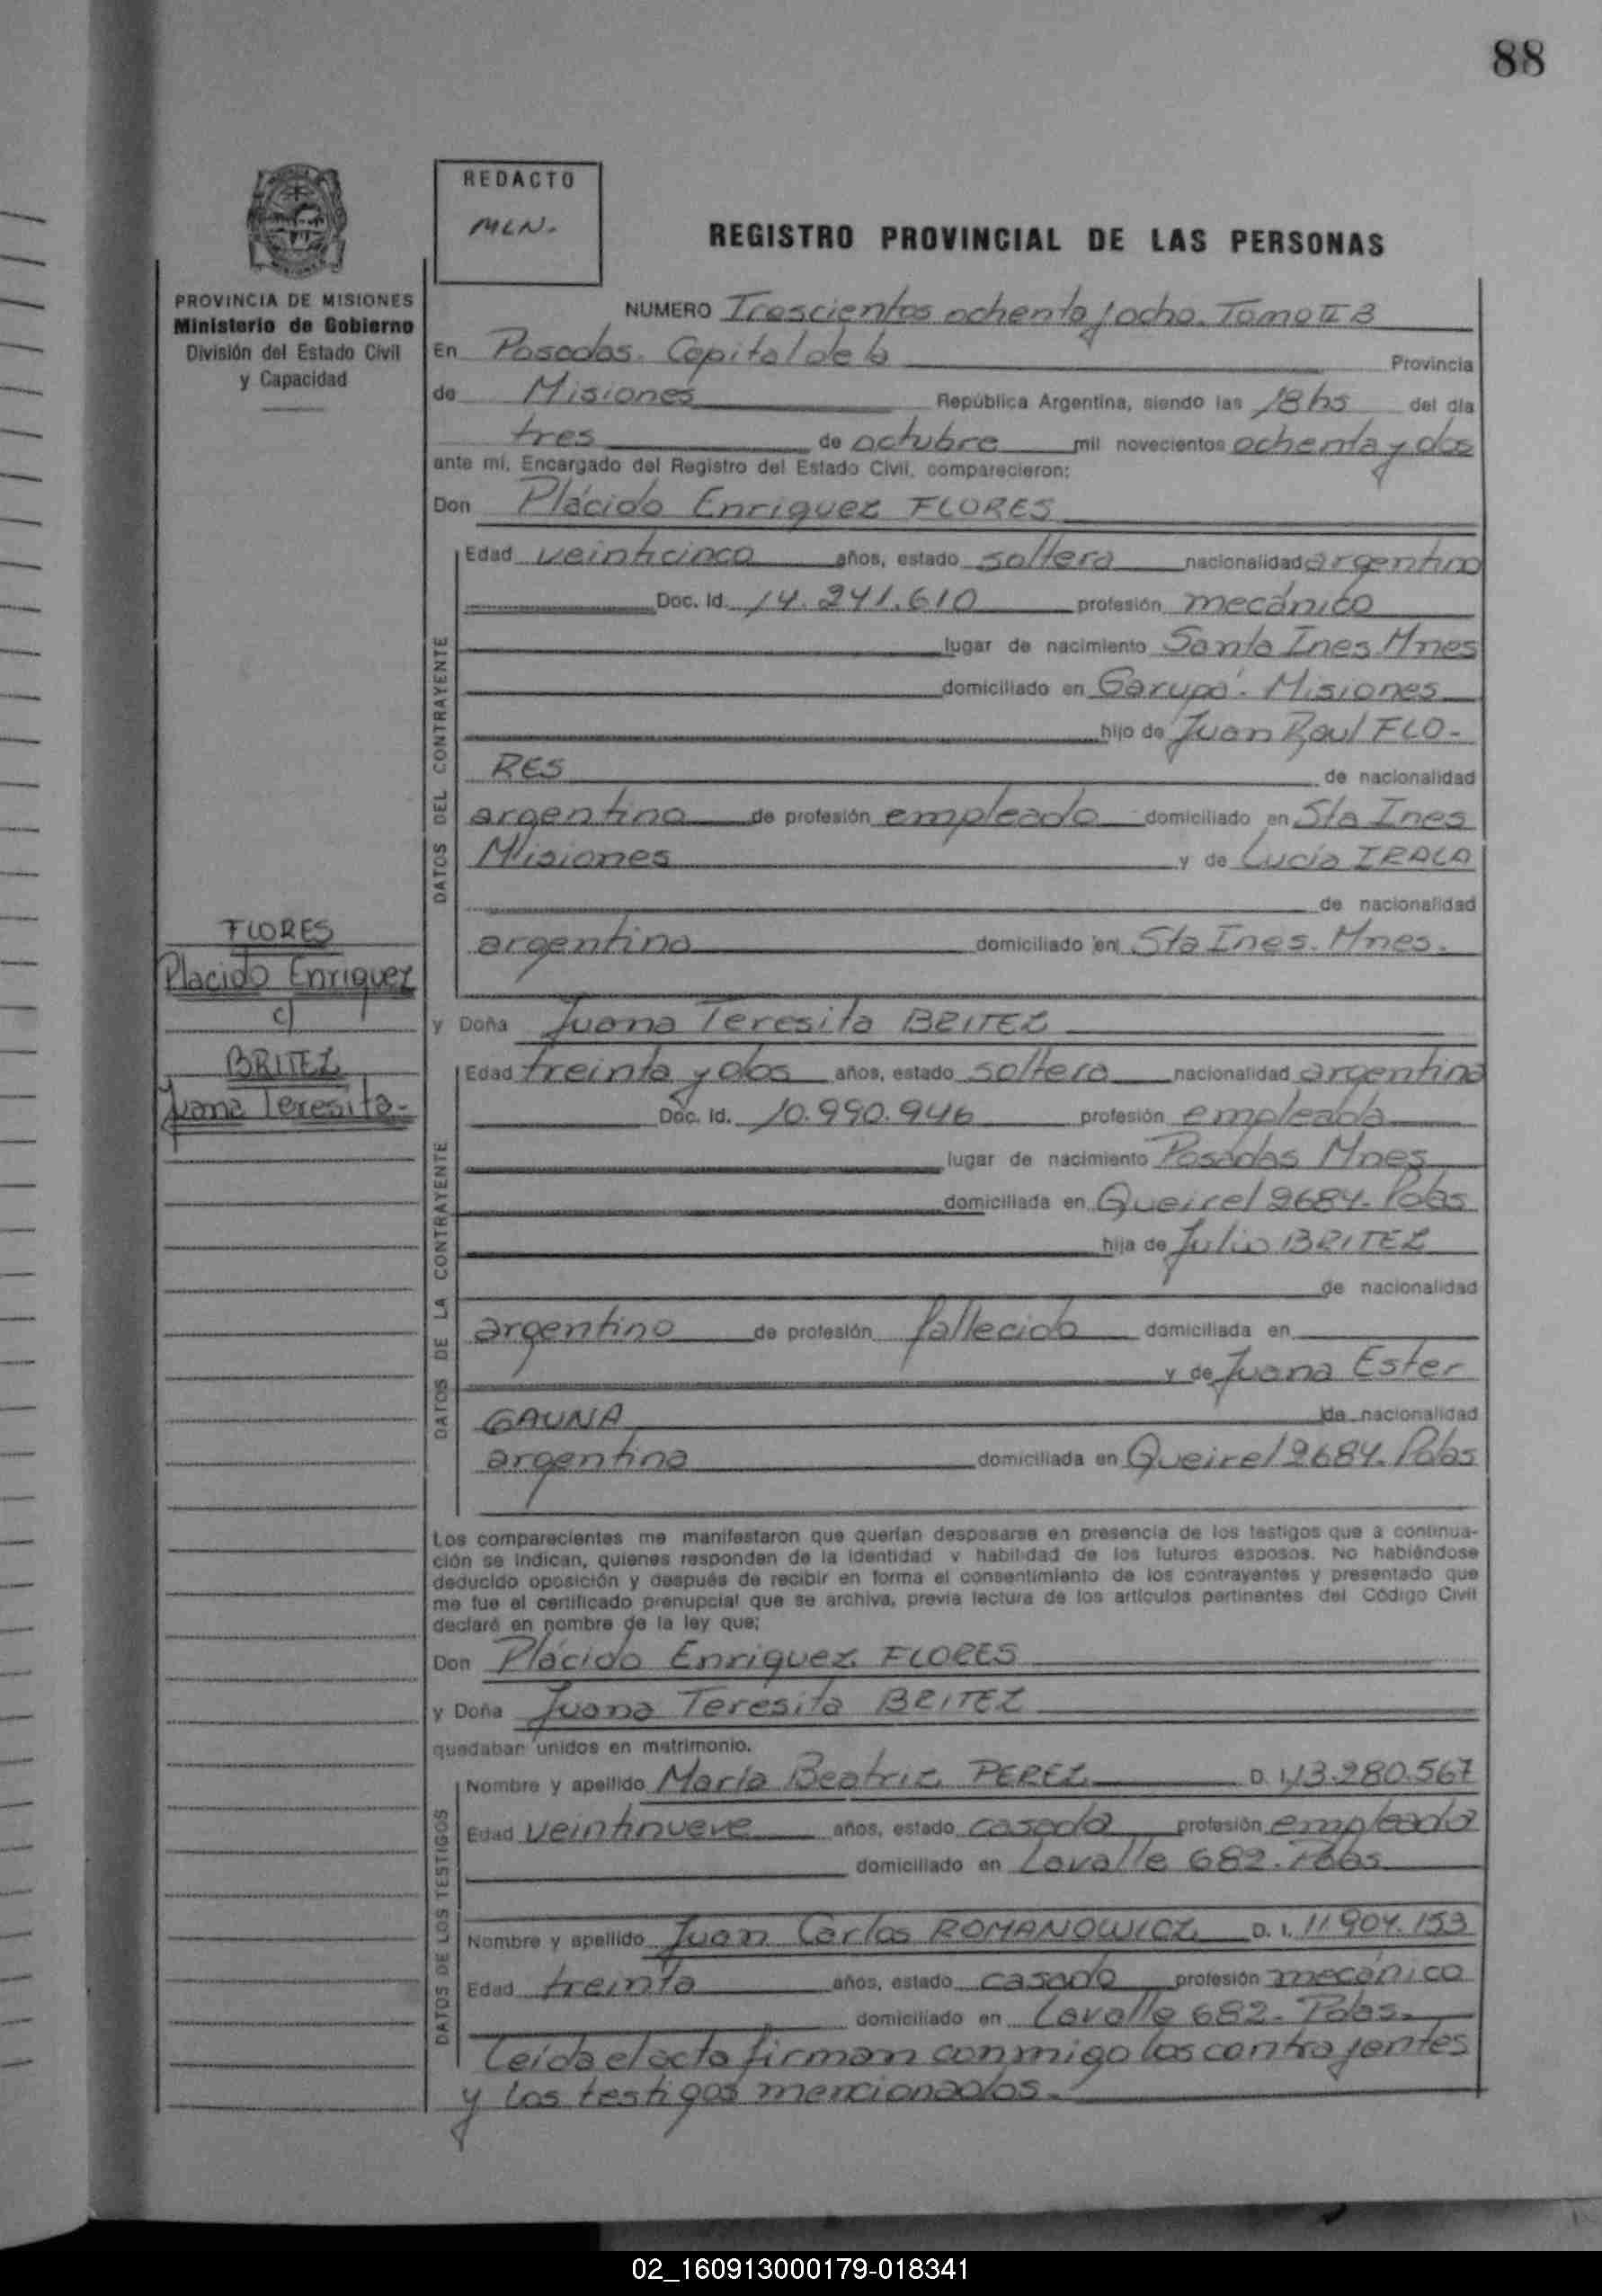 88
REDACTO
MLN.
REGISTRO PROVINCIAL DE LAS PERSONAS
PROVINCIA DE MISIONES
Ministerio de Gobierno
División del Estado Civil
y Capacidad
NUMERO Trescientos ochenta y ocho. Tomo II B
En Posadas. Capital de la Provincia
de Misiones República Argentina, siendo las 18 hs del día
tres de octubre mil novecientos ochenta y dos
ante mí, Encargado del Registro del Estado Civil, comparecieron:
Don Plácido Enriquez FLORES
DATOS DEL CONTRAYENTE
Edad veinticinco años, estado soltero nacionalidad argentino
Doc. Id. 14.241.610 profesión mecánico
lugar de nacimiento Santa Ines Mnes
domiciliado en Garupá. Misiones
hijo de Juan Raul FLO-
RES de nacionalidad
argentino de profesión empleado domiciliado en Sta Ines
Misiones y de Lucia IRALA
de nacionalidad
argentina domiciliado en Sta Ines. Mnes.
FLORES
Placido Enriquez
c/
BRITEZ
Juana Teresita-
y Doña Juana Teresita BRITEZ
DATOS DE LA CONTRAYENTE
Edad treinta y dos años, estado soltera nacionalidad argentina
Doc. Id. 10.990.946 profesión empleada
lugar de nacimiento Posadas Mnes
domiciliada en Queirel 2684. Pdas
hija de Julio BRITEZ
de nacionalidad
argentino de profesión fallecido domiciliada en
y de Juana Ester
GAUNA de nacionalidad
argentina domiciliada en Queirel 2684. Pdas
Los comparecientes me manifestaron que querían desposarse en presencia de los testigos que a continua-
ción se indican, quienes responden de la identidad y habilidad de los futuros esposos. No habiéndose
deducido oposición y después de recibir en forma el consentimiento de los contrayentes y presentado que
me fue el certificado prenupcial que se archiva, previa lectura de los artículos pertinentes del Código Civil
declaré en nombre de la ley que:
Don Plácido Enriquez FLORES
y Doña Juana Teresita BRITEZ
quedaban unidos en matrimonio.
DATOS DE LOS TESTIGOS
Nombre y apellido María Beatriz PEREZ D. I. 13.280.567
Edad veintinueve años, estado casada profesión empleada
domiciliado en Lavalle 682. Pdas
Nombre y apellido Juan Carlos ROMANOWICZ D. I. 11.904.153
Edad treinta años, estado casado profesión mecánico
domiciliado en Lavalle 682. Pdas.
Leída el acta firman conmigo los contrayentes
y los testigos mencionados.
02_160913000179-018341